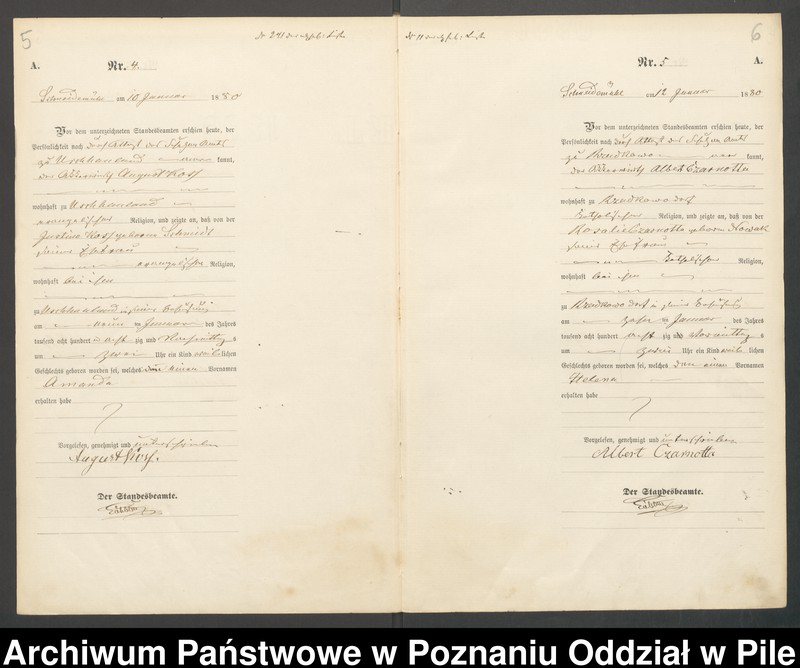 5
A.
Nr. 4.
Schneidemühl am 10 Januar 1880
Vor dem unterzeichneten Standesbeamten erschien heute, der
Persönlichkeit nach durch Attest des Schulzen Amts
zu Uschhauland kannt,
der August
wohnhaft zu Uschhauland
evangelischer Religion, und zeigte an, daß von der
Justine geborene Schmidt
seiner Ehefrau
evangelischer Religion,
wohnhaft bei ihm
zu Uschhauland in seiner Behausung
am neun ten Januar des Jahres
tausend acht hundert acht zig und Nachmittags
um zwei Uhr ein Kind weiblichen
Geschlechts geboren worden sei, welches den einen Vornamen
Amanda
erhalten habe
Vorgelesen, genehmigt und unterschrieben
August
Der Standesbeamte.
6
A.
Nr. 5
Schneidemühl am 12 Januar 1880
Vor dem unterzeichneten Standesbeamten erschien heute, der
Persönlichkeit nach durch Attest des Schulzen Amts
zu kannt,
der Albert Czarnotta
wohnhaft zu dorf
katholischer Religion, und zeigte an, daß von der
Rosalie Czarnotta geborene Nowak
seiner Ehefrau
katholischer Religion,
wohnhaft bei ihm
zu dorf in seiner Behausung
am zehn ten Januar des Jahres
tausend acht hundert acht zig und Vormittags
um Uhr ein Kind weib lichen
Geschlechts geboren worden sei, welches den einen Vornamen
Helena
erhalten habe
Vorgelesen, genehmigt und unterschrieben
Albert Czarnotta
Der Standesbeamte.
Archiwum Państwowe w Poznaniu Oddział w Pile